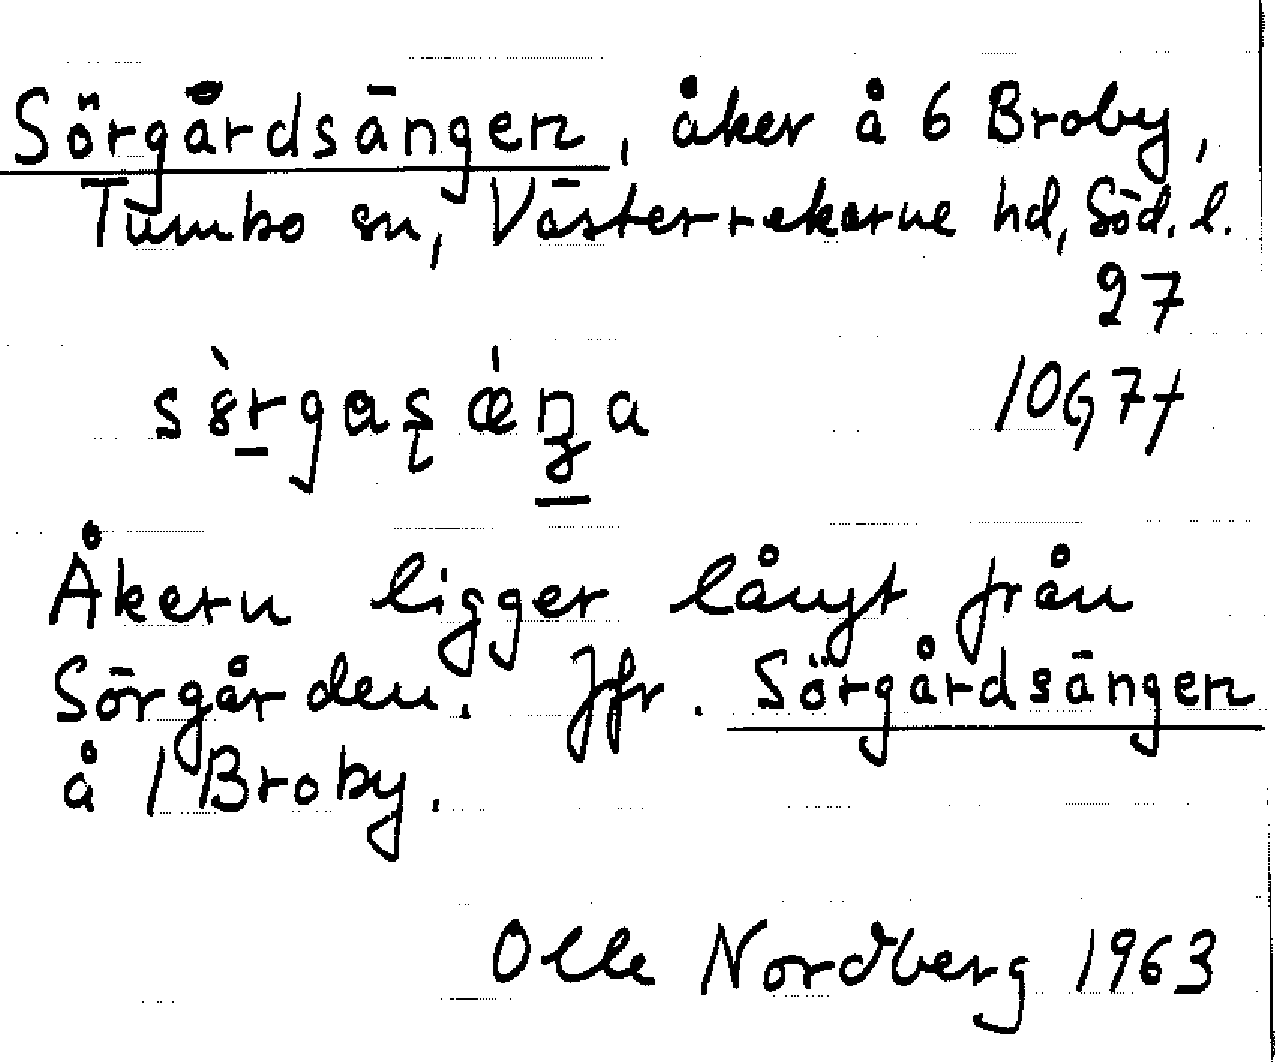 Sörgårdsängen, åker å 6 Broby,
Tumbo sn, Västerrekarne hd, Söd. l.
27
10G7f
Åkern ligger långt från
Sörgården. Jfr. Sörgårdsängen
å 1 Broby.
Olle Nordberg 1963